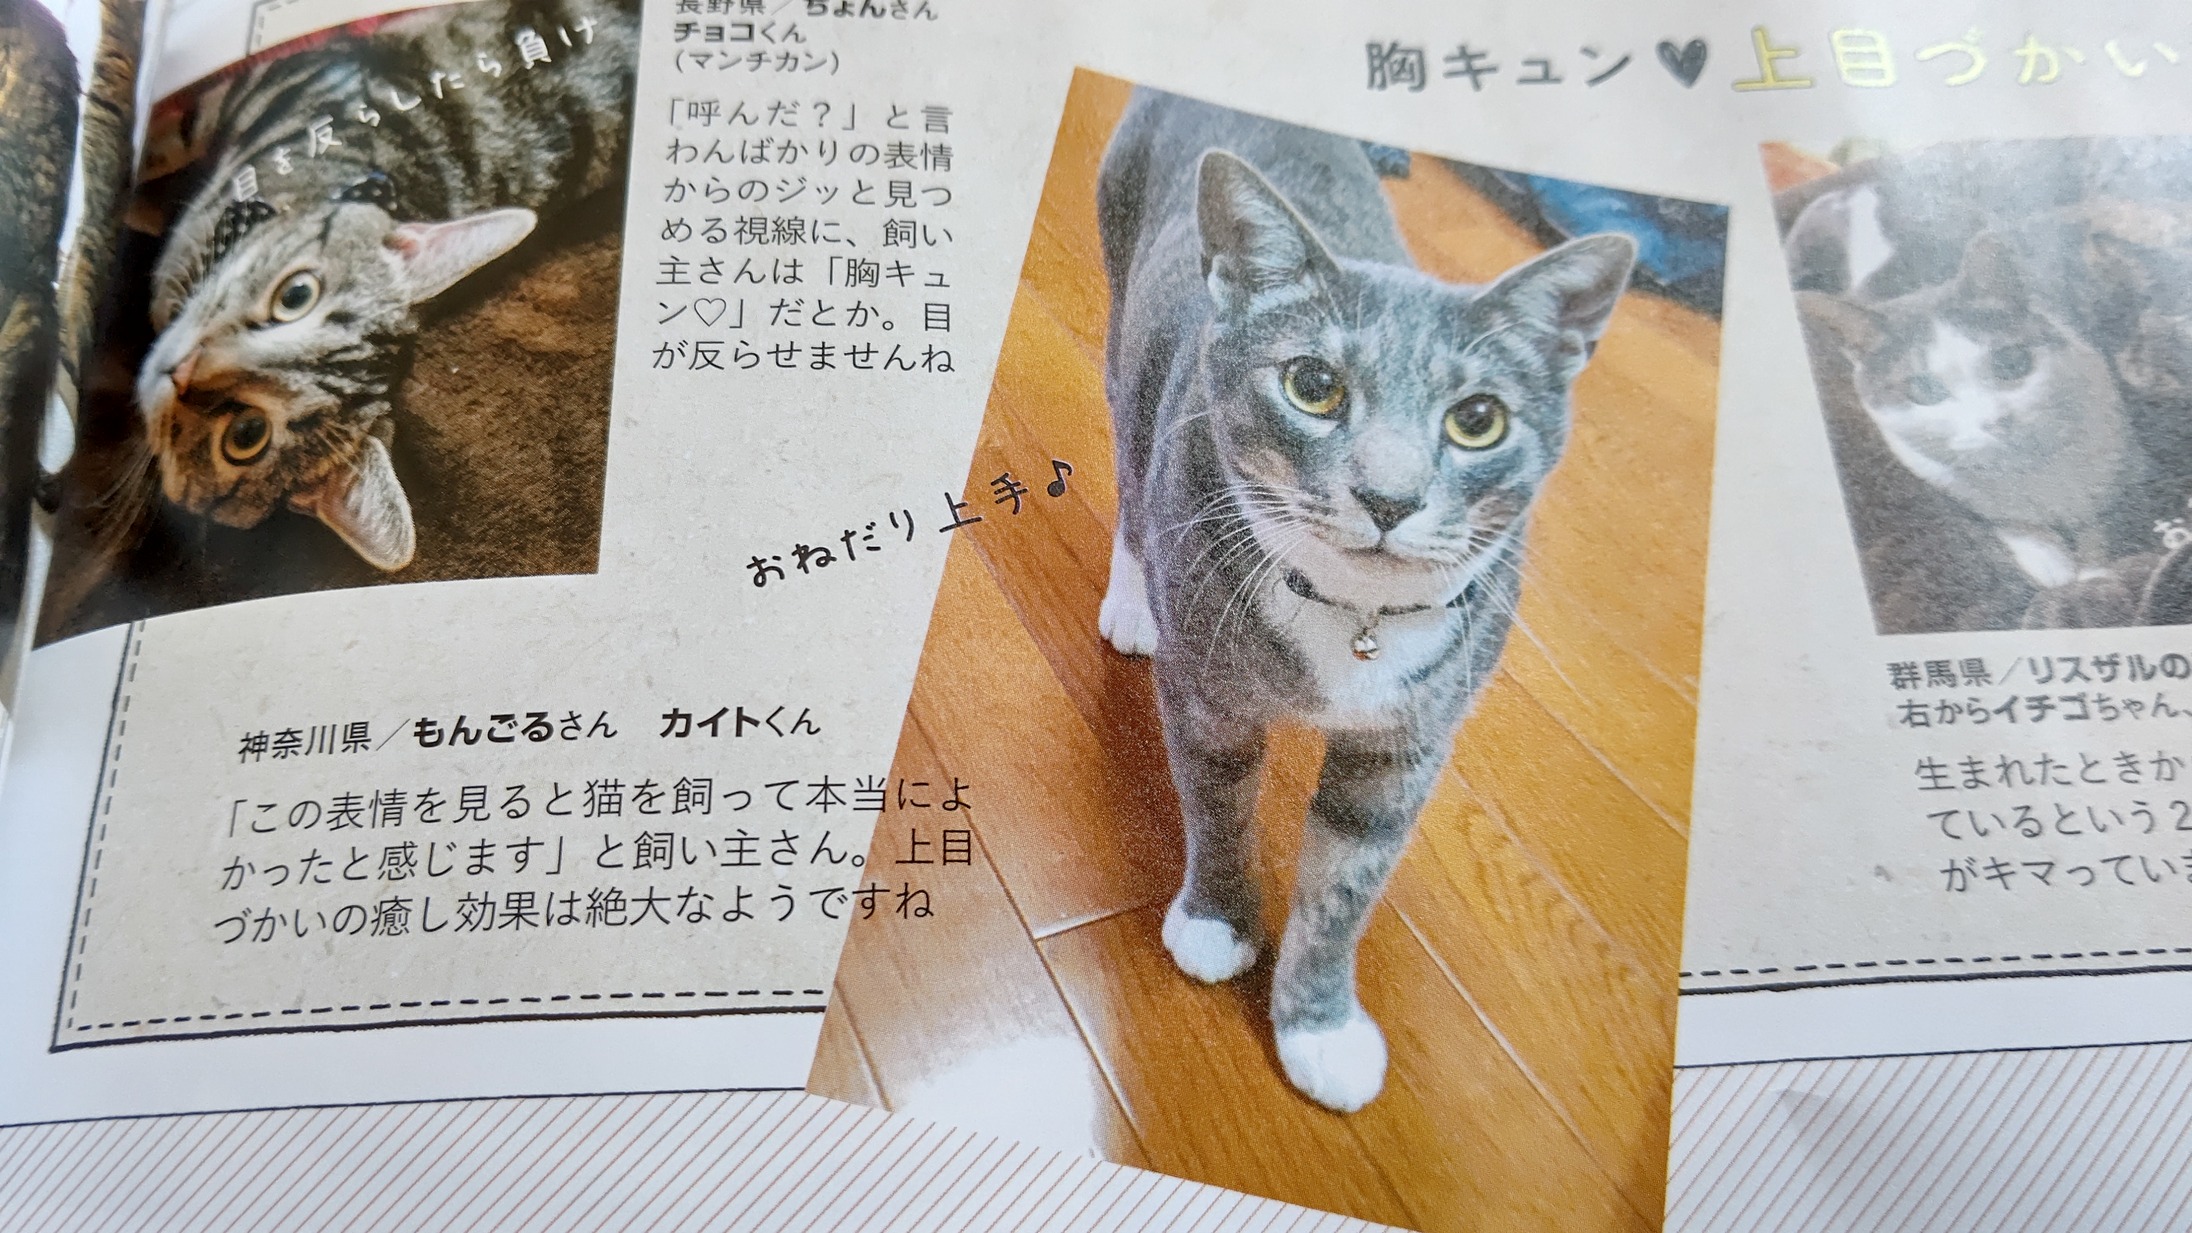 目を反らしたら負け
長野県／ちょんさん
チョコくん
（マンチカン）
「呼んだ？」と言
わんばかりの表情
からのジッと見つ
める視線に、飼い
主さんは「胸キュ
ン♡」だとか。目
が反らせませんね
胸キュン♥上目づかい
おねだり上手♪
神奈川県／もんごるさん　カイトくん
「この表情を見ると猫を飼って本当によ
かったと感じます」と飼い主さん。上目
づかいの癒し効果は絶大なようですね
お
群馬県／リスザルの
右からイチゴちゃん、
生まれたときか
ているという2
がキマっていま